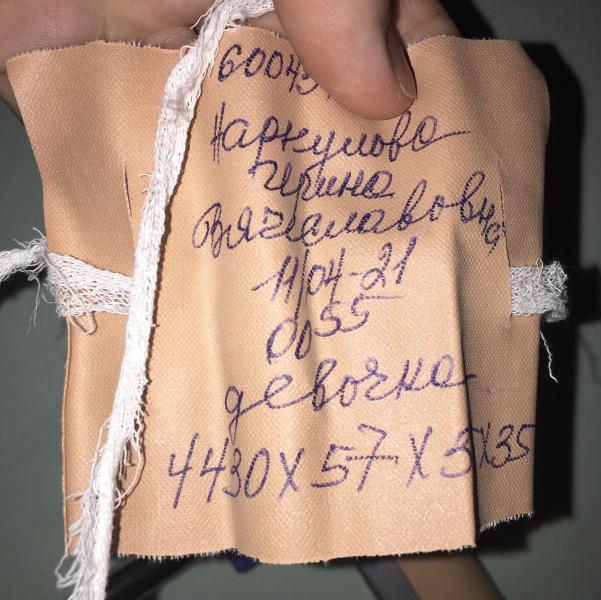 60045
Наркулова
Ирина
Вячеславовна
11/04-21
00 55
девочка
4430 X 57 X 5X35